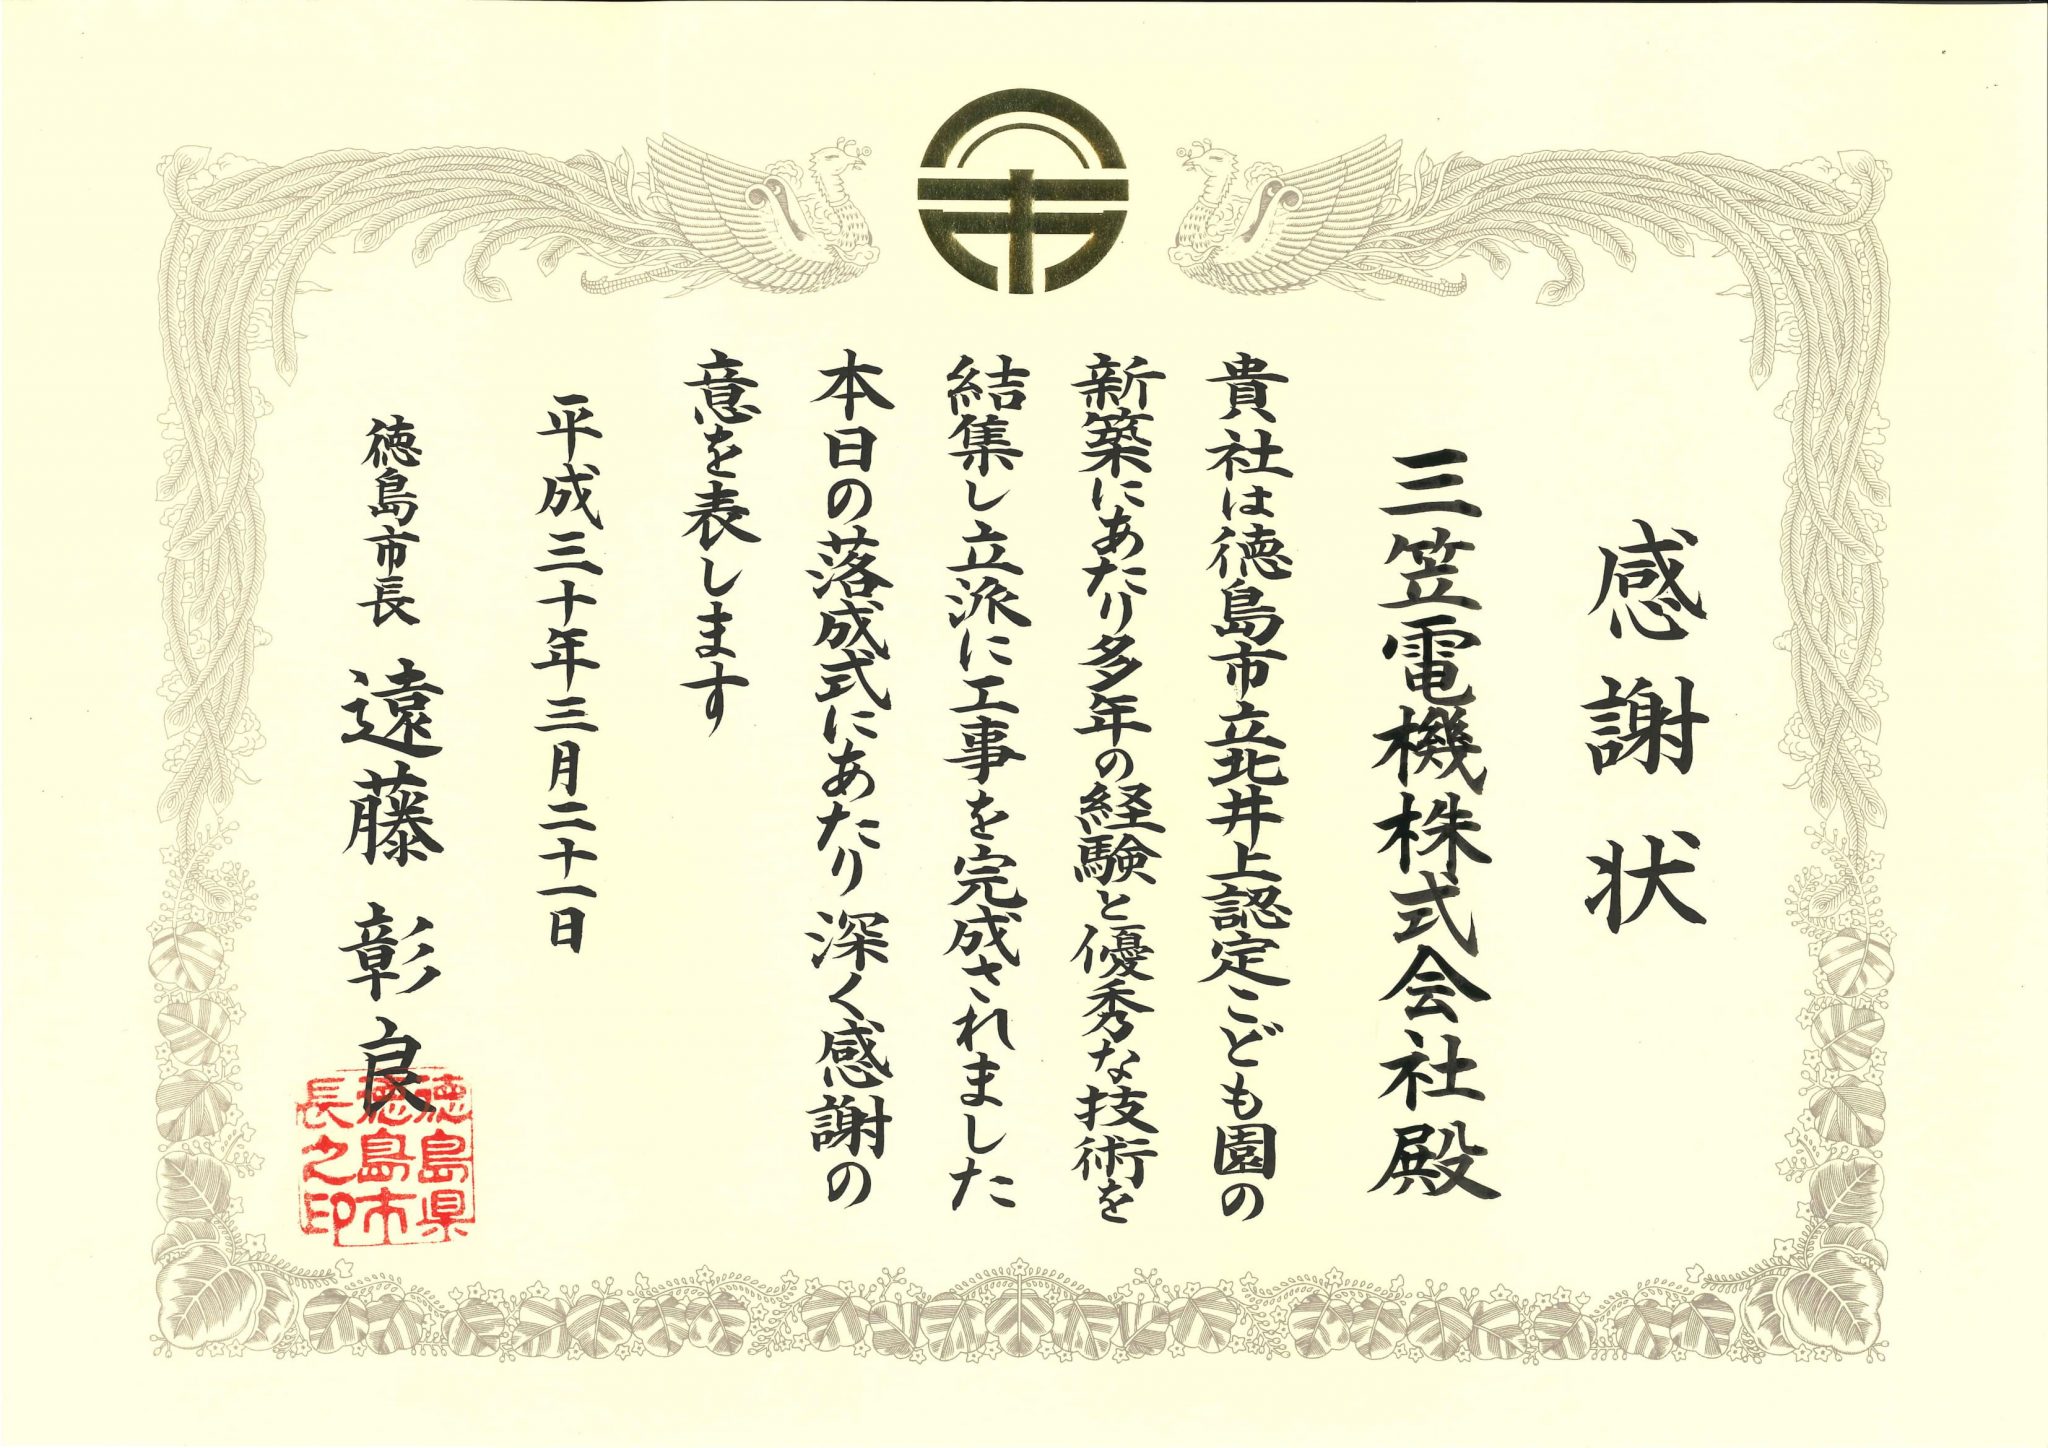 感謝状
三笠電機株式会社殿
貴社は徳島市立北井上認定こども園の
新築にあたり多年の経験と優秀な技術を
結集し立派に工事を完成されました
本日の落成式にあたり深く感謝の
意を表します
平成三十年三月二十一日
徳島市長 遠藤彰良
徳島県
徳島市
長之印